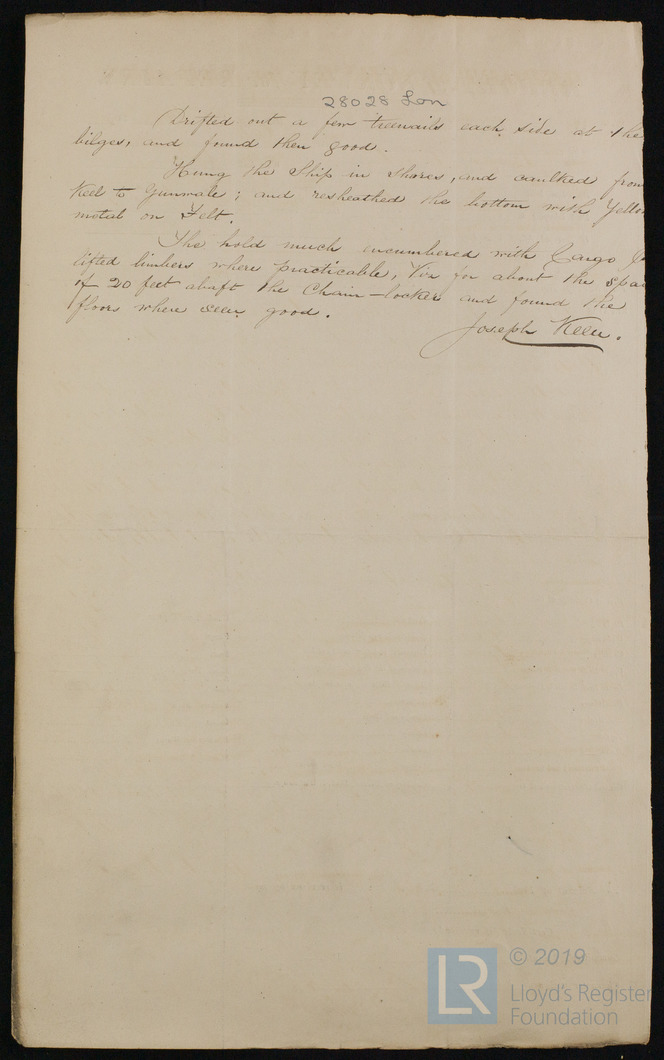 28028 Lon
Drifted out a few treenails each side at the
bilges, and found them good.
Hung the Ship in Shores, and caulked from
Keel to Gunwale; and resheathed the bottom with Yellow
metal on Felt.
The hold much encumbered with Cargo
lifted limbers where practicable, Viz for about the spa
of 20 feet abaft the Chain-locker and found the
floors where seen good.
Joseph Keen.
© 2019
LR
Lloyd's Register
Foundation